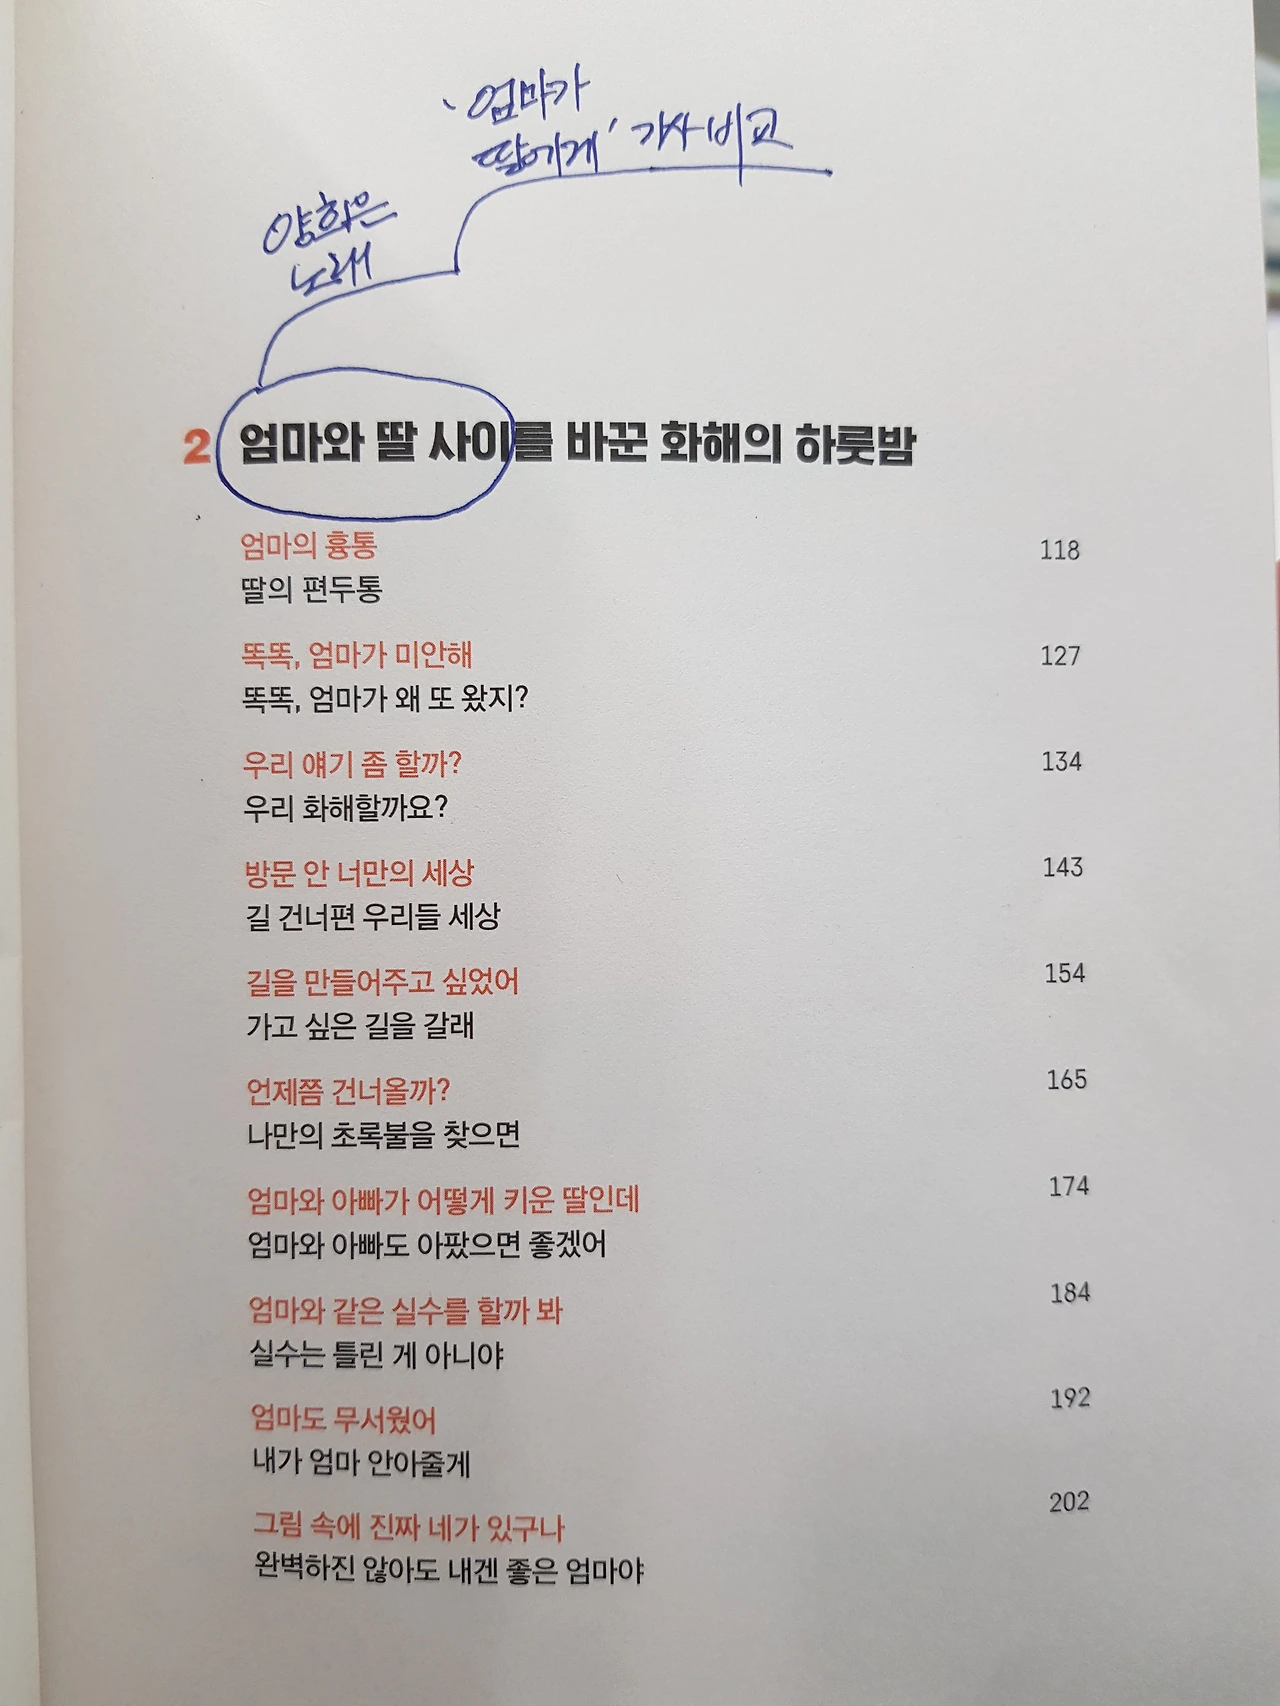 '엄마가
딸에게' 가사 비교
양희은
노래
2 엄마와 딸 사이를 바꾼 화해의 하룻밤
엄마의 흉통 118
딸의 편두통
똑똑, 엄마가 미안해 127
똑똑, 엄마가 왜 또 왔지?
우리 얘기 좀 할까? 134
우리 화해할까요?
방문 안 너만의 세상 143
길 건너편 우리들 세상
길을 만들어주고 싶었어 154
가고 싶은 길을 갈래
언제쯤 건너올까? 165
나만의 초록불을 찾으면
엄마와 아빠가 어떻게 키운 딸인데 174
엄마와 아빠도 아팠으면 좋겠어
엄마와 같은 실수를 할까 봐 184
실수는 틀린 게 아니야
엄마도 무서웠어 192
내가 엄마 안아줄게
그림 속에 진짜 네가 있구나 202
완벽하진 않아도 내겐 좋은 엄마야